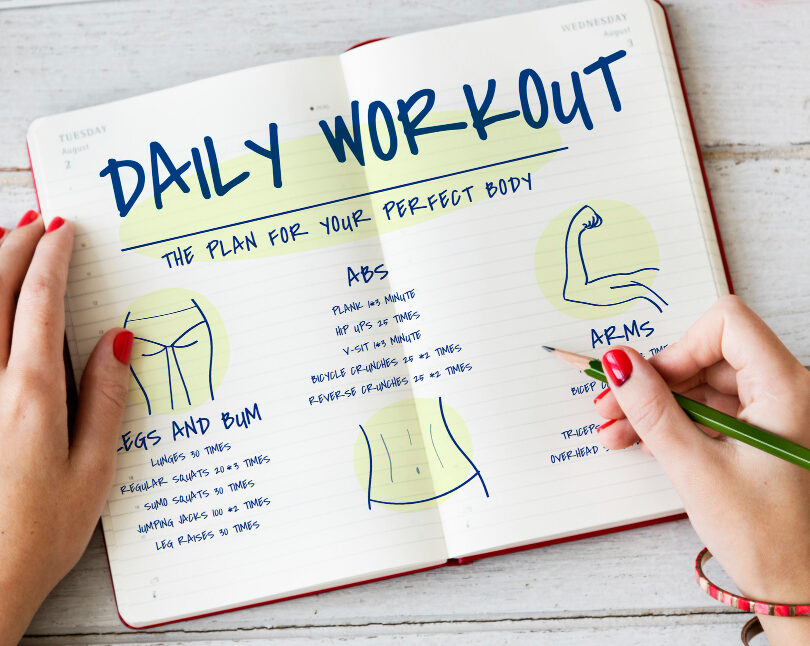 TUESDAY
August
2
WEDNESDAY
August
3
DAILY WORKOUT
THE PLAN FOR YOUR PERFECT BODY
LEGS AND BUM
LUNGES 30 TIMES
REGULAR SQUATS 20 *3 TIMES
SUMO SQUATS 30 TIMES
JUMPING JACKS 100 *2 TIMES
LEG RAISES 30 TIMES
ABS
PLANK 1*3 MINUTE
HIP UPS 25 TIMES
V-SIT 1*3 MINUTE
BICYCLE CRUNCHES 25 *2 TIMES
REVERSE CRUNCHES 25 *2 TIMES
ARMS
BICEP
TRICEPS
OVERHEAD